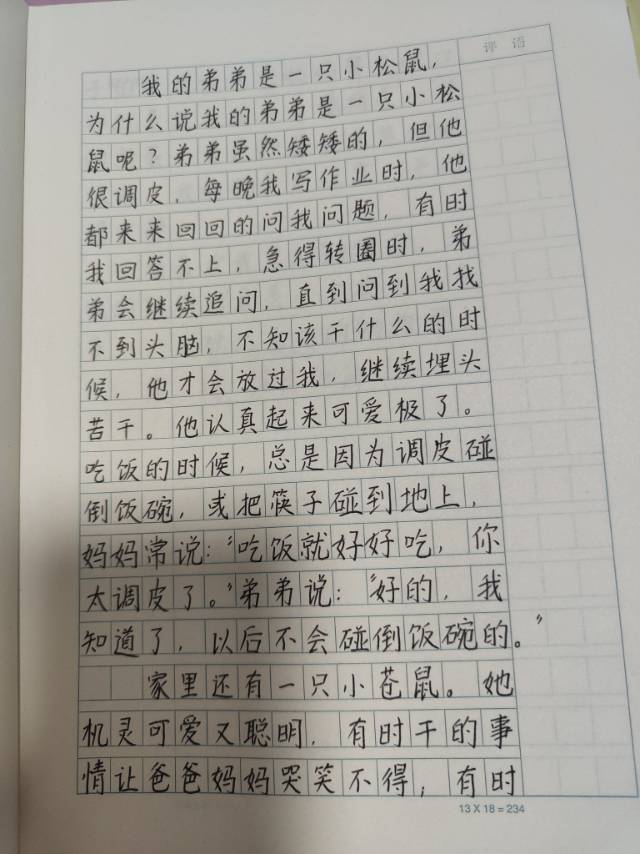 评语
我的弟弟是一只小松鼠，
为什么说我的弟弟是一只小松
鼠呢？弟弟虽然矮矮的，但他
很调皮，每晚我写作业时，他
都来来回回的问我问题，有时
我回答不上，急得转圈时，弟
弟会继续追问，直到问到我找
不到头脑，不知该干什么的时
候，他才会放过我，继续埋头
苦干。他认真起来可爱极了。
吃饭的时候，总是因为调皮碰
倒饭碗，或把筷子碰到地上，
妈妈常说：“吃饭就好好吃，你
太调皮了。”弟弟说：“好的，我
知道了，以后不会碰倒饭碗的。”
家里还有一只小苍鼠。她
机灵可爱又聪明，有时干的事
情让爸爸妈妈哭笑不得，有时
13×18=234